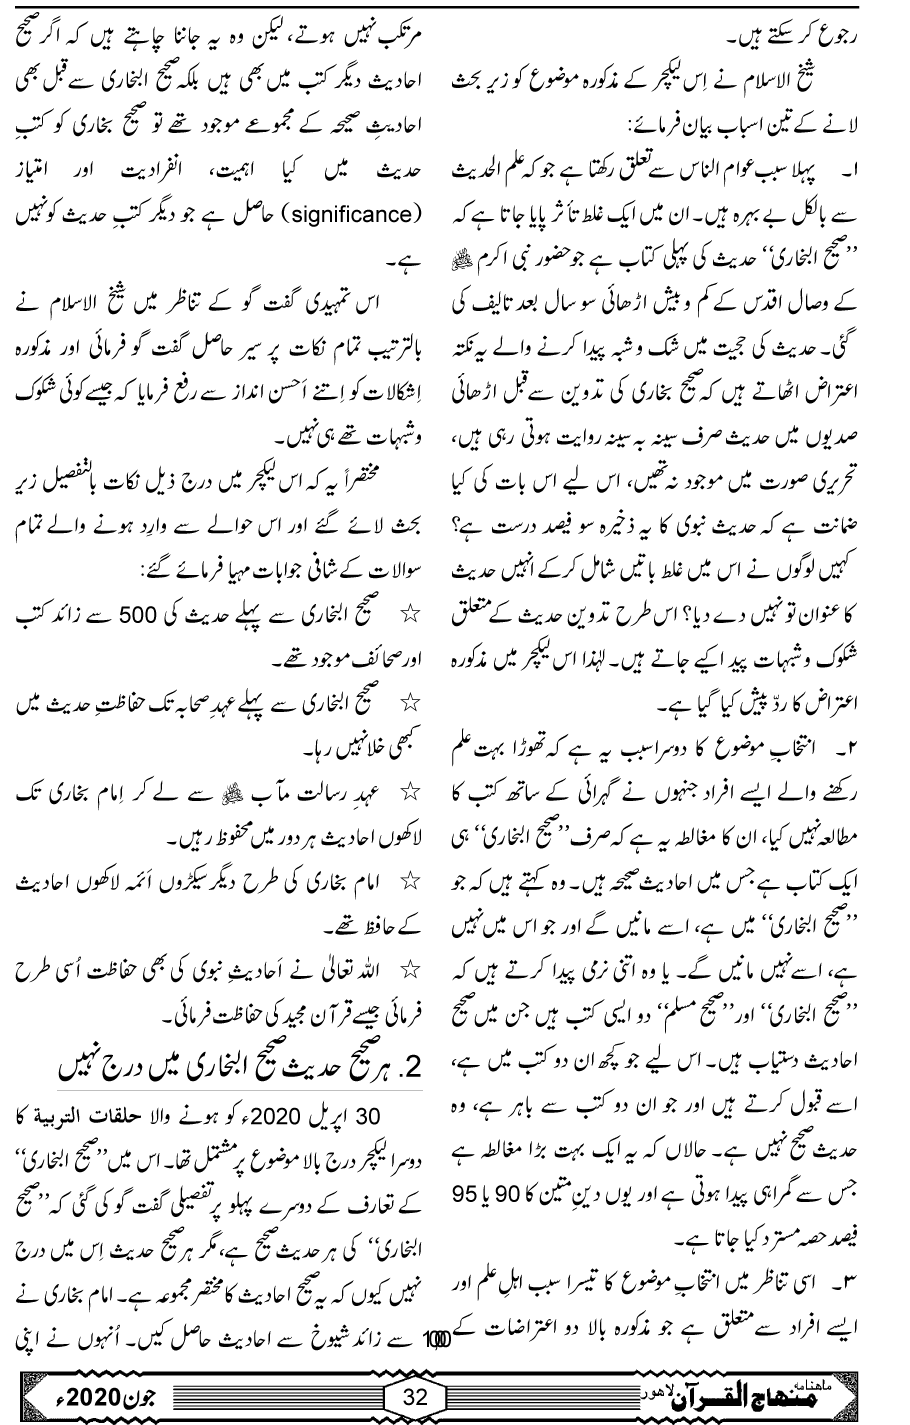 رجوع کر سکتے ہیں۔
شیخ الاسلام نے اِس لیکچر کے مذکورہ موضوع کو زیرِ بحث
لانے کے تین اسباب بیان فرمائے:
۱۔ پہلا سبب عوام الناس سے تعلق رکھتا ہے جو کہ علم الحدیث
سے بالکل بے بہرہ ہیں۔ ان میں ایک غلط تأثر پایا جاتا ہے کہ
’’صحیح البخاری‘‘ حدیث کی پہلی کتاب ہے جو حضور نبی اکرم ﷺ
کے وصال اقدس کے کم و بیش اڑھائی سو سال بعد تالیف کی
گئی۔ حدیث کی حجیت میں شک و شبہ پیدا کرنے والے یہ نکتہ
اعتراض اٹھاتے ہیں کہ صحیح بخاری کی تدوین سے قبل اڑھائی
صدیوں میں حدیث صرف سینہ بہ سینہ روایت ہوتی رہی ہیں،
تحریری صورت میں موجود نہ تھیں، اس لیے اس بات کی کیا
ضمانت ہے کہ حدیث نبوی کا یہ ذخیرہ سو فیصد درست ہے؟
کہیں لوگوں نے اس میں غلط باتیں شامل کرکے انہیں حدیث
کا عنوان تو نہیں دے دیا؟ اس طرح تدوین حدیث کے متعلق
شکوک و شبہات پیدا کیے جاتے ہیں۔ لہٰذا اس لیکچر میں مذکورہ
اعتراض کا ردّ پیش کیا گیا ہے۔
۲۔ انتخابِ موضوع کا دوسرا سبب یہ ہے کہ تھوڑا بہت علم
رکھنے والے ایسے افراد جنہوں نے گہرائی کے ساتھ کتب کا
مطالعہ نہیں کیا، ان کا مغالطہ یہ ہے کہ صرف ’’صحیح البخاری‘‘ ہی
ایک کتاب ہے جس میں احادیث صحیحہ ہیں۔ وہ کہتے ہیں کہ جو
’’صحیح البخاری‘‘ میں ہے، اسے مانیں گے اور جو اس میں نہیں
ہے، اسے نہیں مانیں گے۔ یا وہ اتنی نرمی پیدا کرتے ہیں کہ
’’صحیح البخاری‘‘ اور ’’صحیح مسلم‘‘ دو ایسی کتب ہیں جن میں صحیح
احادیث دستیاب ہیں۔ اس لیے جو کچھ ان دو کتب میں ہے،
اسے قبول کرتے ہیں اور جو ان دو کتب سے باہر ہے، وہ
حدیث صحیح نہیں ہے۔ حالاں کہ یہ ایک بہت بڑا مغالطہ ہے
جس سے گمراہی پیدا ہوتی ہے اور یوں دینِ متین کا 90 یا 95
فیصد حصہ مسترد کیا جاتا ہے۔
۳۔ اسی تناظر میں انتخابِ موضوع کا تیسرا سبب اہلِ علم اور
ایسے افراد سے متعلق ہے جو مذکورہ بالا دو اعتراضات کے
مرتکب نہیں ہوتے، لیکن وہ یہ جاننا چاہتے ہیں کہ اگر صحیح
احادیث دیگر کتب میں بھی ہیں بلکہ صحیح البخاری سے قبل بھی
احادیثِ صحیحہ کے مجموعے موجود تھے تو صحیح بخاری کو کتبِ
حدیث میں کیا اہمیت، انفرادیت اور امتیاز
(significance) حاصل ہے جو دیگر کتبِ حدیث کو نہیں
ہے۔
اس تمہیدی گفت گو کے تناظر میں شیخ الاسلام نے
بالترتیب تمام نکات پر سیر حاصل گفت گو فرمائی اور مذکورہ
اِشکالات کو اِتنے اَحسن انداز سے رفع فرمایا کہ جیسے کوئی شکوک
و شبہات تھے ہی نہیں۔
مختصراً یہ کہ اس لیکچر میں درج ذیل نکات بالتفصیل زیرِ
بحث لائے گئے اور اس حوالے سے وارِد ہونے والے تمام
سوالات کے شافی جوابات مہیا فرمائے گئے:
☆ صحیح البخاری سے پہلے حدیث کی 500 سے زائد کتب
اور صحائف موجود تھے۔
☆ صحیح البخاری سے پہلے عہدِ صحابہ تک حفاظتِ حدیث میں
کبھی خلا نہیں رہا۔
☆ عہدِ رسالت مآب ﷺ سے لے کر اِمام بخاری تک
لاکھوں احادیث ہر دور میں محفوظ رہیں۔
☆ امام بخاری کی طرح دیگر سیکڑوں اَئمہ لاکھوں احادیث
کے حافظ تھے۔
☆ اللہ تعالیٰ نے اَحادیثِ نبوی کی بھی حفاظت اُسی طرح
فرمائی جیسے قرآن مجید کی حفاظت فرمائی۔
2. ہر صحیح حدیث صحیح البخاری میں درج نہیں
30 اپریل 2020ء کو ہونے والا حلقات التربية کا
دوسرا لیکچر درج بالا موضوع پر مشتمل تھا۔ اس میں ’’صحیح البخاری‘‘
کے تعارف کے دوسرے پہلو پر تفصیلی گفت گو کی گئی کہ ’’صحیح
البخاری‘‘ کی ہر حدیث صحیح ہے، مگر ہر صحیح حدیث اِس میں درج
نہیں کیوں کہ یہ صحیح احادیث کا مختصر مجموعہ ہے۔ امام بخاری نے
سے زائد شیوخ سے احادیث حاصل کیں۔ اُنہوں نے اپنی
ماہنامہ منہاج القرآن لاہور
32
جون 2020ء